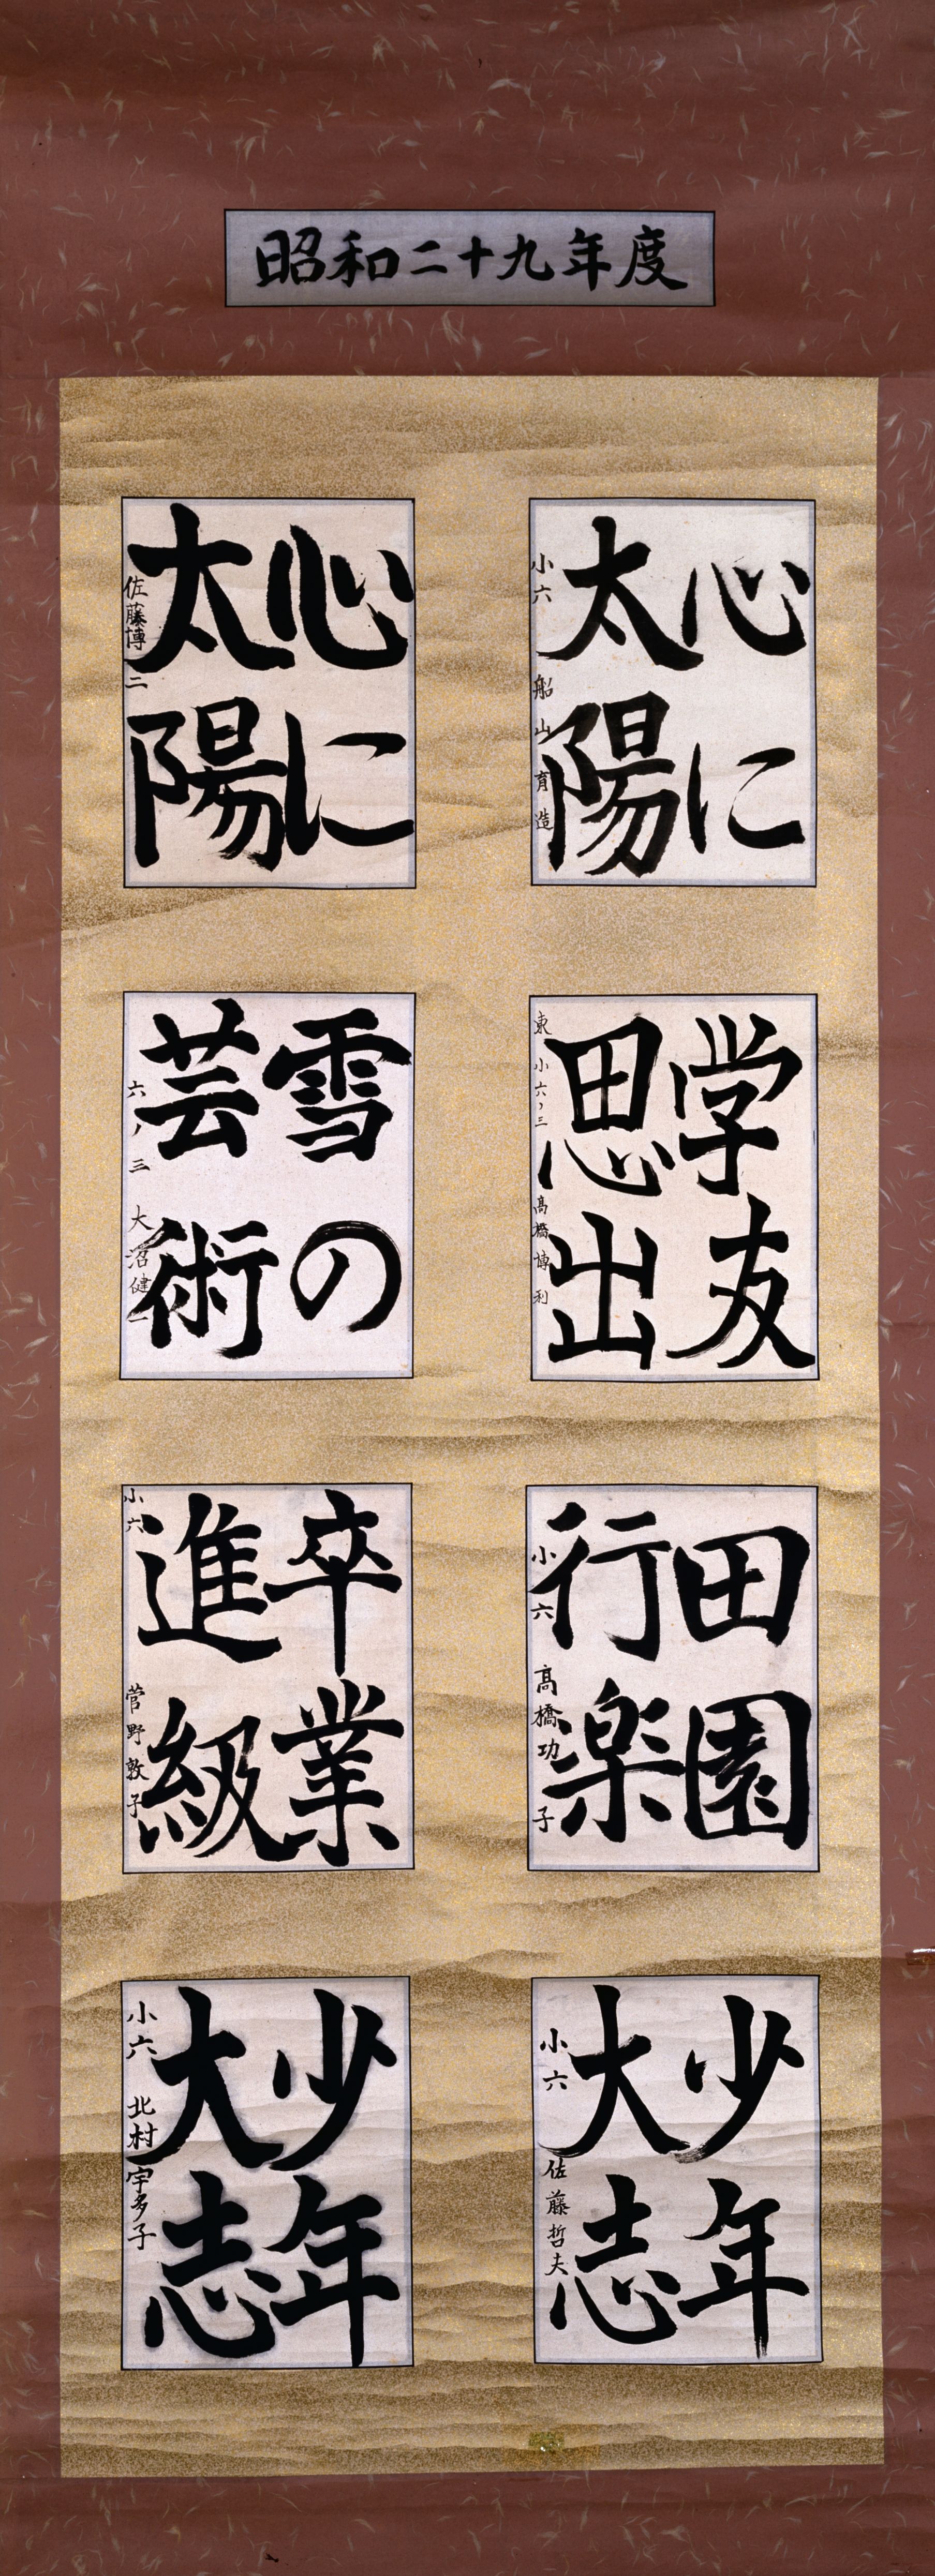 昭和二十九年度
心に
太陽
小六 船山育造
心に
太陽
佐藤博二
学友
思出
東小六ノ三 高橋博利
雪の
芸術
六ノ三 大沼健一
田園
行楽
小六 高橋功子
卒業
進級
小六 菅野敦子
少年
大志
小六 佐藤哲夫
少年
大志
小六 北村宇多子